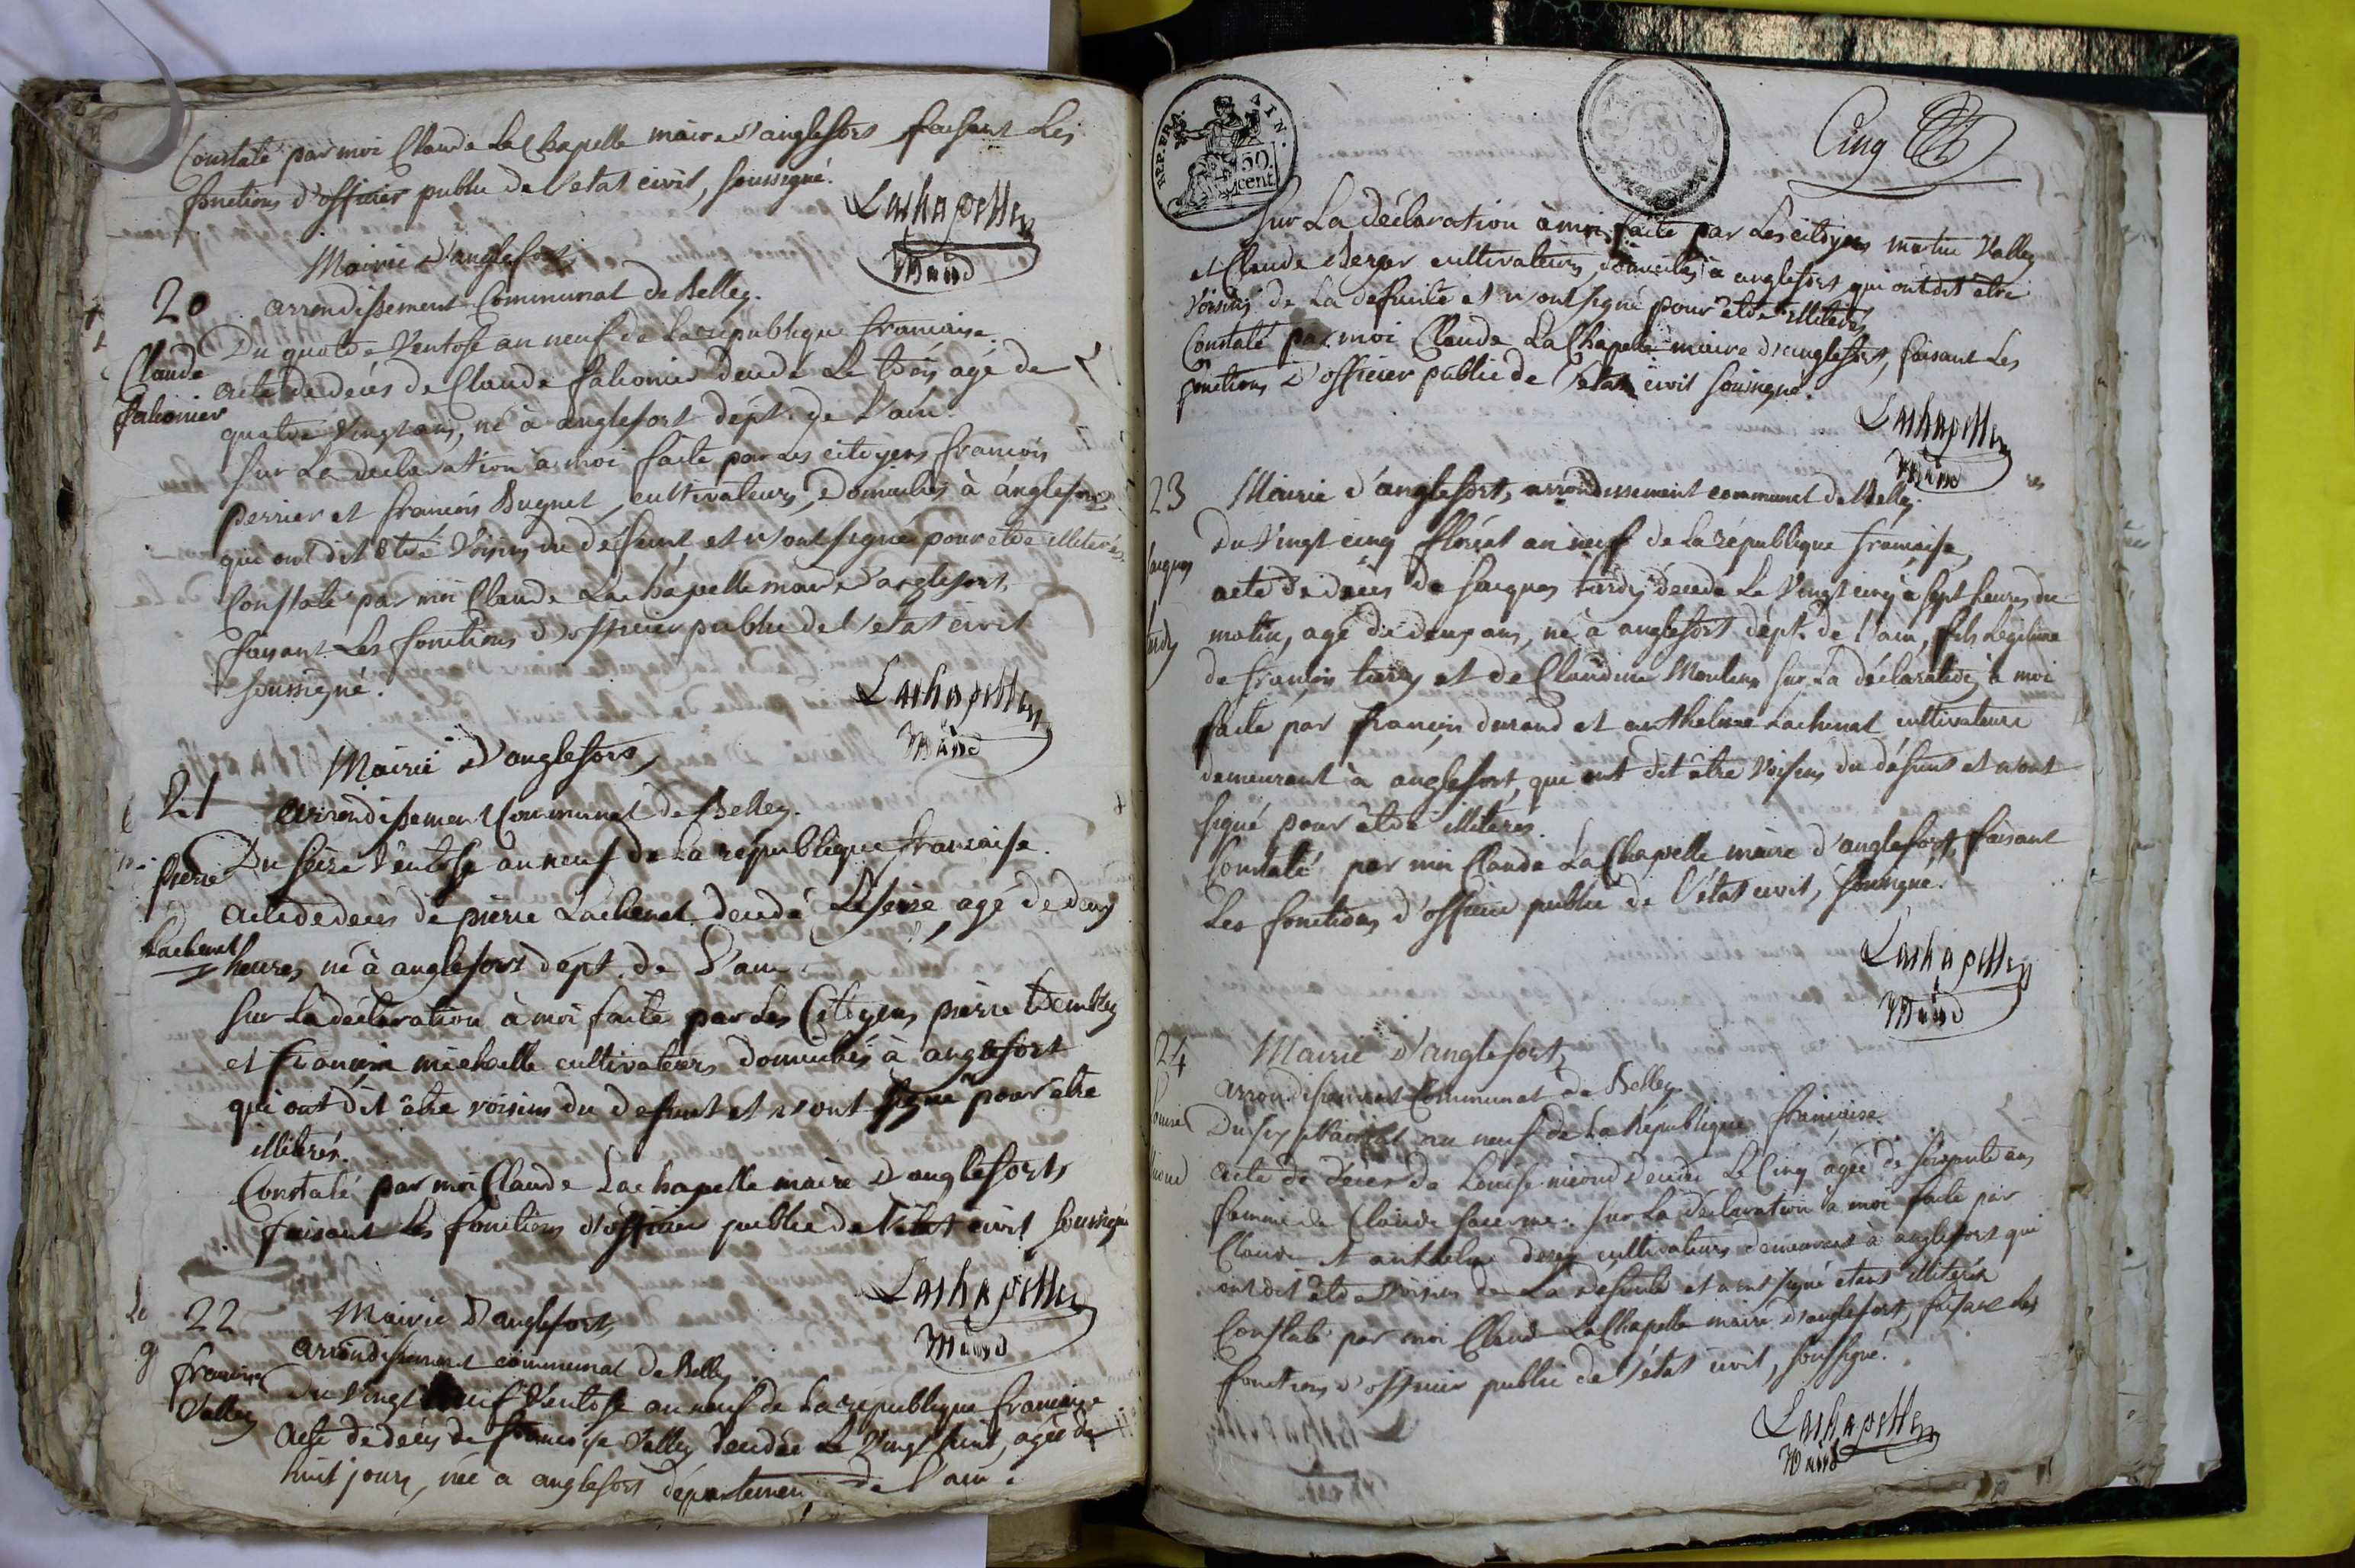 Constaté par moi Claude LaChapelle maire d'anglefort faisant Les
fonctions d'officier public de l'etat civil, soussigné.
Lachapelle
Maire
Mairie d'anglefort
20 arrondissement Communal de Belley.
Du quatre Ventose an neuf de La republique francaise.
Claude
falconier
acte de déces de Claude falconier decedé Le trois agé de
quatre Vingt ans, né à anglefort dépt. de L'ain.
Sur La declaration à moi faite par Les citoyens francois
perrier et francois Bugnet, cultivateurs, domiciliés à anglefort
qui ont dit être Voisins du défunt et n'ont signé pour etre illiterés
Constaté par moi Claude Lachapelle maire d'anglefort,
faisant Les fonctions d'officier public de L'etat civil
soussigné.
Lachapelle
Maire
Mairie d'anglefort,
21 arrondissement Communal de Belley.
Du seize Ventose an neuf de La république francaise.
pierre
Lachenal
acte de deces de pierre Lachenal decedé Le seize, agé de deux
heures, né à anglefort dépt. de L'ain.
Sur La déclaration à moi faite par Les Citoyens pierre
et francois michelle cultivateurs domiciliés à anglefort
qui ont dit être voisins du defunt et n'ont signé pour etre
illitérés.
Constaté par moi Claude Lachapelle maire d'anglefort
faisant Les fonctions d'officier public de l'état civil soussigné
Lachapelle
Maire
22 Mairie d'anglefort,
arrondissement communal de Belley.
francoise
Valley
Du Vingt neuf Ventose an neuf de La republique francaise
acte de déces de francoise Valley decedée Le Vingt huit, agée de
huit jours, née à anglefort département de L'ain.
REP. FRA. AIN.
50
cent
Cinq
Sur La déclaration à moi faite par Les citoyens Valley
et Claude Berger cultivateurs, domiciliés à anglefort, qui ont dit être
Voisins de La defunte et n'ont signé pour être illiterés
Constaté par moi Claude LaChapelle maire d'anglefort, faisant Les
fonctions d'officier public de l'etat civil soussigné.
Lachapelle
Maire
23 Mairie d'anglefort, arrondissement communal de Belley.
Du Vingt cinq floréal an neuf de La république francaise,
Jacques
acte de déces de Jacques tardy décedé Le Vingt cinq à sept heures du
matin, agé de deux ans, né à anglefort dépt. de l'ain, fils Légitime
de francois tardy et de Claudine sur La déclaration à moi
faite par francois durand et anthelme Lachenal cultivateurs
demeurant à anglefort, qui ont dit être Voisins du défunt et n'ont
signé pour être illiterés.
Constaté par moi Claude LaChapelle maire d'anglefort, faisant
Les fonctions d'officier public de l'état civil, soussigné.
Lachapelle
Maire
24 Mairie d'anglefort,
arrondissement Communal de Belley.
Du six prairial an neuf de La République française
acte de déces de Louise decedée Le Cinq agée de soixante ans
femme de Claude sur La déclaration à moi faite par
Claude et anthelme cultivateurs demeurant à anglefort qui
ont dit être voisins de La defunte et n'ont signé etant illiterés
Constaté par moi Claude LaChapelle maire d'anglefort, faisant Les
fonctions d'officier public de l'état civil, soussigné.
Lachapelle
Maire